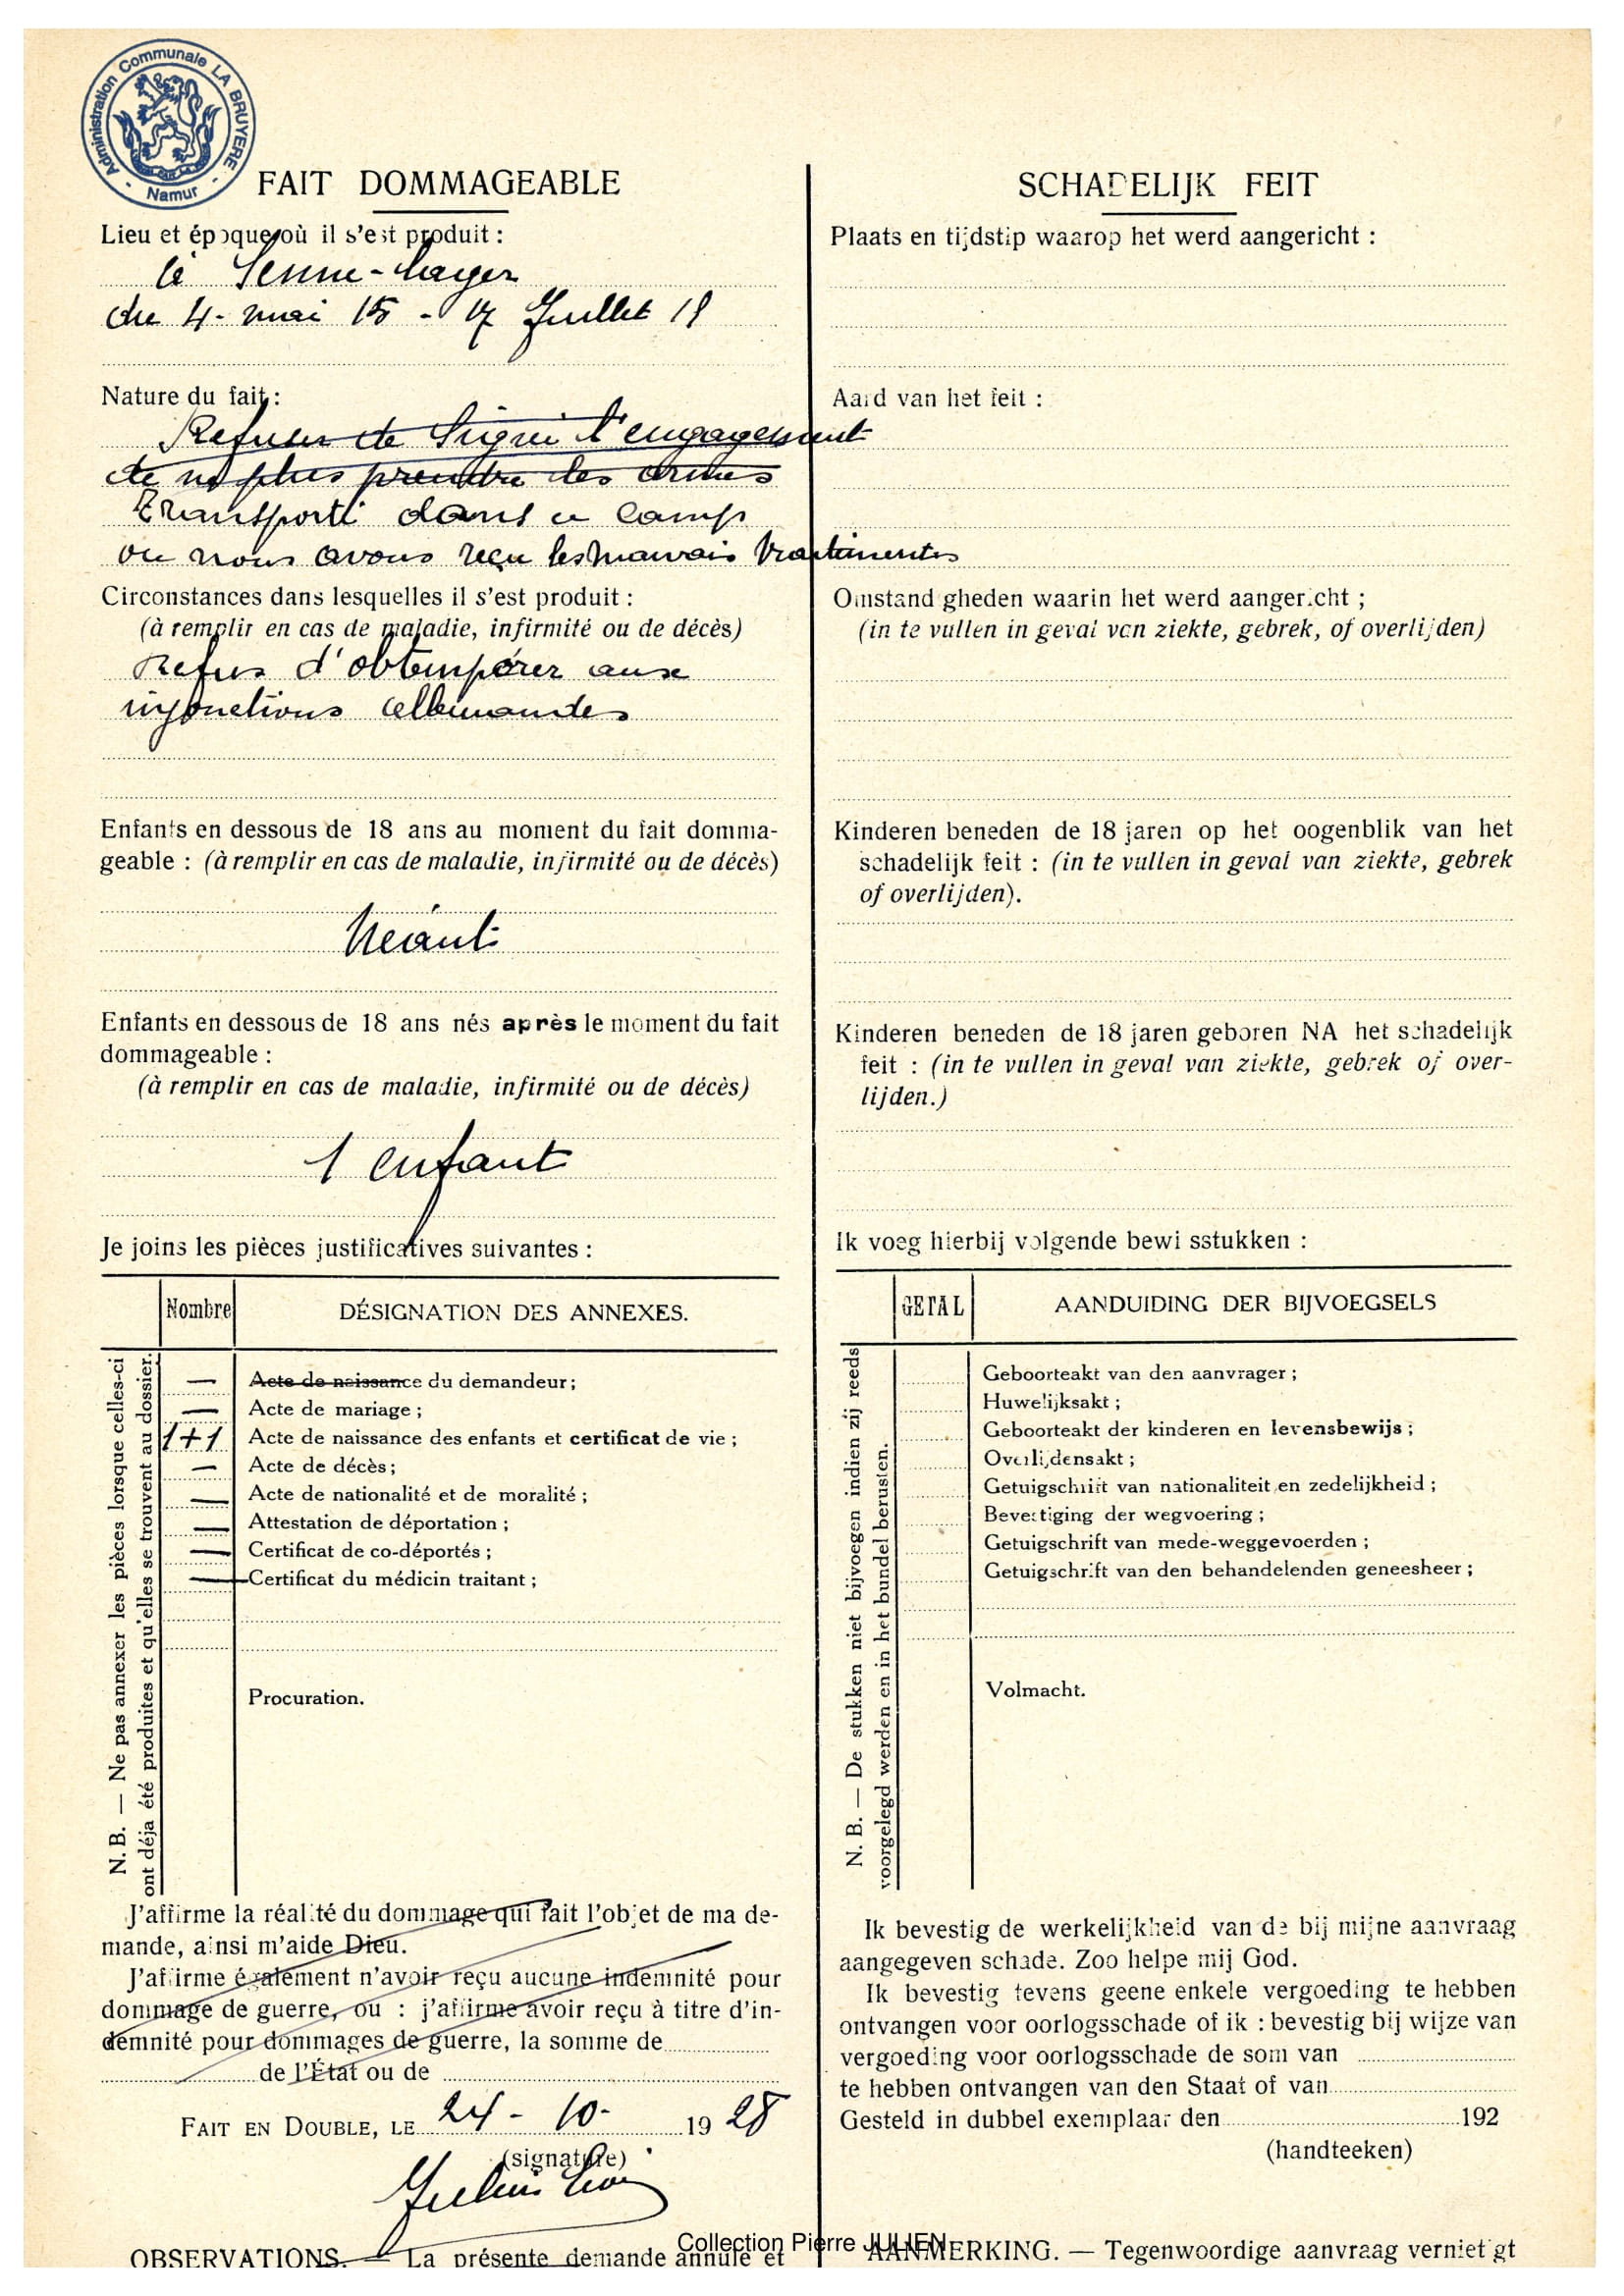 Administration Communale LA BRUYERE
- Namur -
FAIT DOMMAGEABLE
Lieu et époque où il s'est produit :
à Senne-lager
du 4 - mai 15 - 17 Juillet 18
Nature du fait :
Refuser de Signé l'engagement
de ne plus prendre les armes
transporté dans u camp
ou nous avons reçu les mauvais traitements
Circonstances dans lesquelles il s'est produit :
(à remplir en cas de maladie, infirmité ou de décès)
Refus d'obtempérer aux
injonctions allemandes
Enfants en dessous de 18 ans au moment du fait domma-
geable : (à remplir en cas de maladie, infirmité ou de décès)
Néant
Enfants en dessous de 18 ans nés après le moment du fait
dommageable :
(à remplir en cas de maladie, infirmité ou de décès)
1 enfant
Je joins les pièces justificatives suivantes :
Nombre
DÉSIGNATION DES ANNEXES.
N. B. — Ne pas annexer les pièces lorsque celles-ci
ont déja été produites et qu'elles se trouvent au dossier.
— Acte de naissance du demandeur ;
— Acte de mariage ;
1+1 Acte de naissance des enfants et certificat de vie ;
— Acte de décès ;
— Acte de nationalité et de moralité ;
— Attestation de déportation ;
— Certificat de co-déportés ;
— Certificat du médicin traitant ;
Procuration.
J'affirme la réalité du dommage qui fait l'objet de ma de-
mande, ainsi m'aide Dieu.
J'affirme également n'avoir reçu aucune indemnité pour
dommage de guerre, ou : j'affirme avoir reçu à titre d'in-
demnité pour dommages de guerre, la somme de
de l'État ou de
FAIT EN DOUBLE, LE 24 - 10 - 1928
(signature)
OBSERVATIONS. — La présente demande annule et
SCHADELIJK FEIT
Plaats en tijdstip waarop het werd aangericht :
Aard van het feit :
Omstand gheden waarin het werd aangericht ;
(in te vullen in geval van ziekte, gebrek, of overlijden)
Kinderen beneden de 18 jaren op het oogenblik van het
schadelijk feit : (in te vullen in geval van ziekte, gebrek
of overlijden).
Kinderen beneden de 18 jaren geboren NA het schadelijk
feit : (in te vullen in geval van ziekte, gebrek of over-
lijden.)
Ik voeg hierbij volgende bewi sstukken :
GETAL
AANDUIDING DER BIJVOEGSELS
N. B. — De stukken niet bijvoegen indien zij reeds
voorgelegd werden en in het bundel berusten.
Geboorteakt van den aanvrager ;
Huwelijksakt ;
Geboorteakt der kinderen en levensbewijs ;
Overlijdensakt ;
Getuigschrift van nationaliteit en zedelijkheid ;
Bevestiging der wegvoering ;
Getuigschrift van mede-weggevoerden ;
Getuigschrift van den behandelenden geneesheer ;
Volmacht.
Ik bevestig de werkelijkheid van de bij mijne aanvraag
aangegeven schade. Zoo helpe mij God.
Ik bevestig tevens geene enkele vergoeding te hebben
ontvangen voor oorlogsschade of ik : bevestig bij wijze van
vergoeding voor oorlogsschade de som van
te hebben ontvangen van den Staat of van
Gesteld in dubbel exemplaar den 192
(handteeken)
AANMERKING. — Tegenwoordige aanvraag verniet gt
Collection Pierre JULIEN